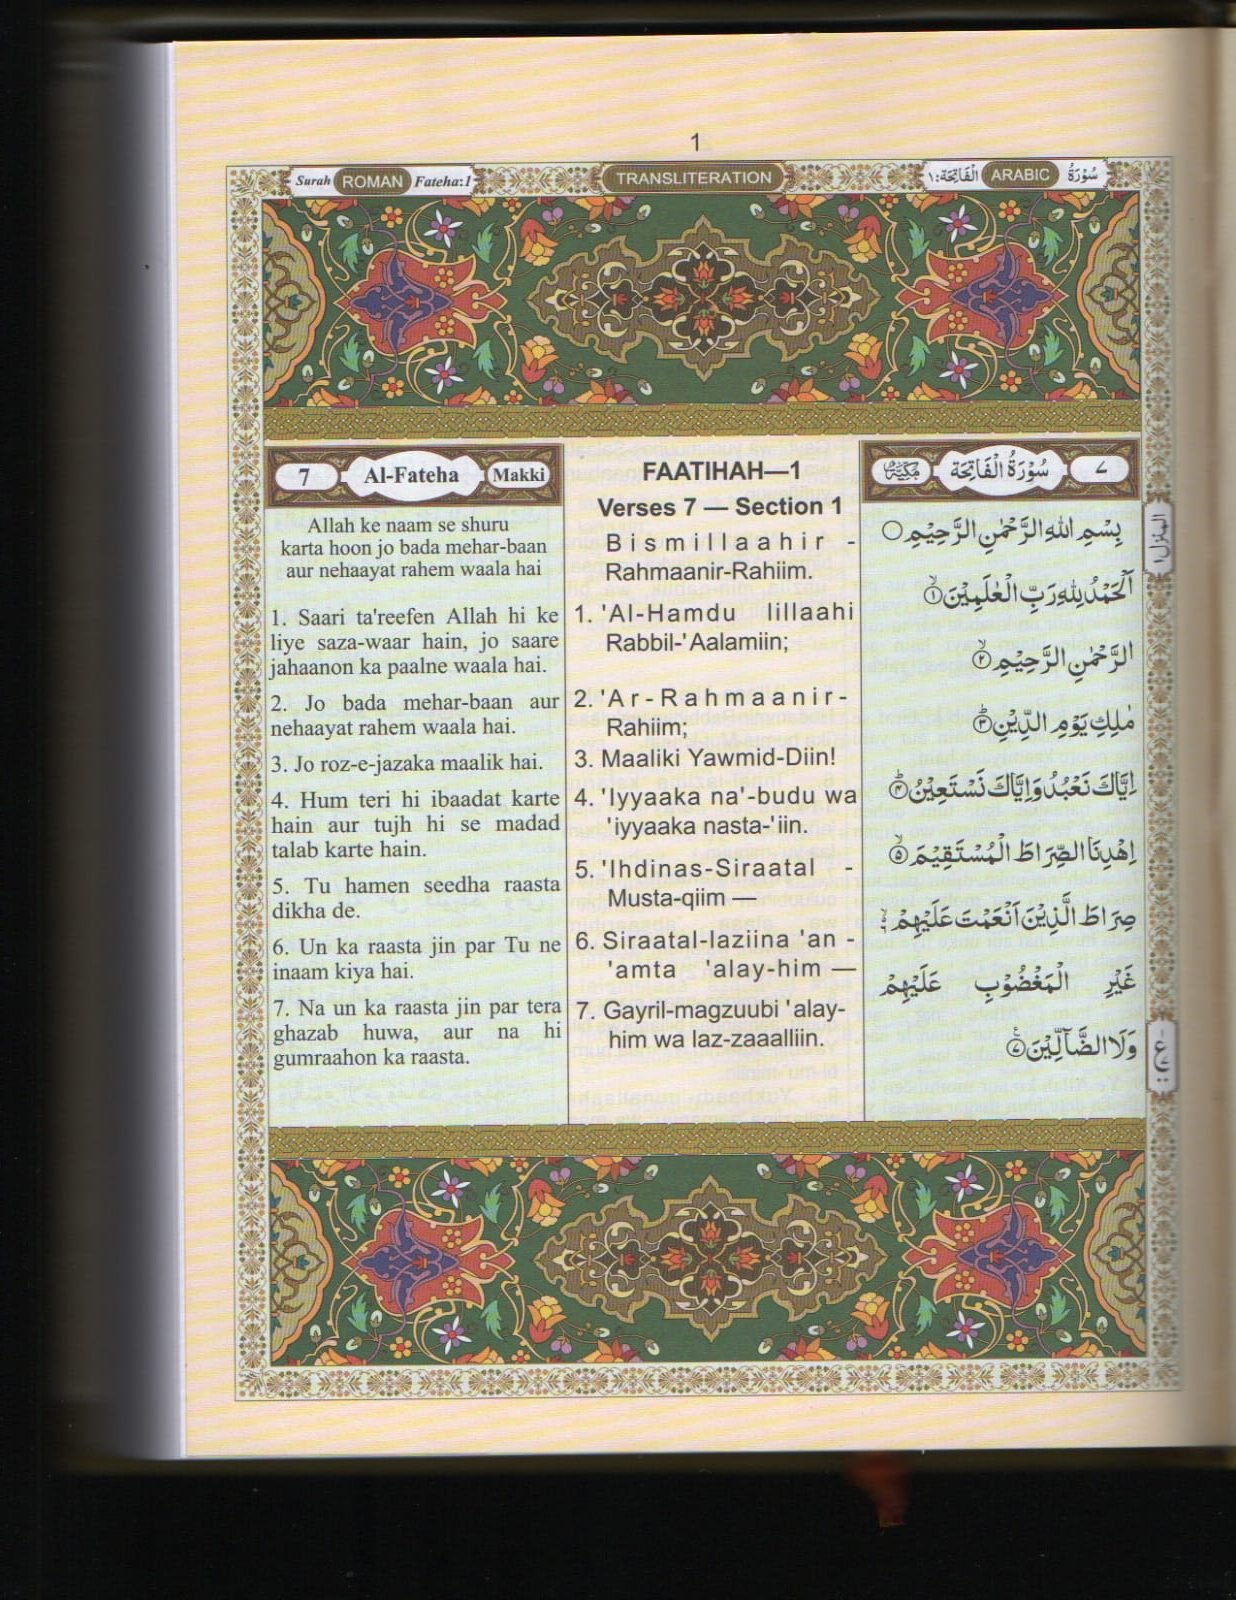 1
Surah ROMAN Fateha:1
TRANSLITERATION
سُوْرَةُ ARABIC الْفَاتِحَة:١
7 Al-Fateha Makki
Allah ke naam se shuru
karta hoon jo bada mehar-baan
aur nehaayat rahem waala hai
1. Saari ta'reefen Allah hi ke
liye saza-waar hain, jo saare
jahaanon ka paalne waala hai.
2. Jo bada mehar-baan aur
nehaayat rahem waala hai.
3. Jo roz-e-jazaka maalik hai.
4. Hum teri hi ibaadat karte
hain aur tujh hi se madad
talab karte hain.
5. Tu hamen seedha raasta
dikha de.
6. Un ka raasta jin par Tu ne
inaam kiya hai.
7. Na un ka raasta jin par tera
ghazab huwa, aur na hi
gumraahon ka raasta.
FAATIHAH—1
Verses 7 — Section 1
Bismillaahir -
Rahmaanir-Rahiim.
1. 'Al-Hamdu lillaahi
Rabbil-'Aalamiin;
2. 'Ar-Rahmaanir-
Rahiim;
3. Maaliki Yawmid-Diin!
4. 'Iyyaaka na'-budu wa
'iyyaaka nasta-'iin.
5. 'Ihdinas-Siraatal -
Musta-qiim —
6. Siraatal-laziina 'an -
'amta 'alay-him —
7. Gayril-magzuubi 'alay-
him wa laz-zaaalliin.
٧ سُوْرَةُ الْفَاتِحَة مَكِّيَّةٌ
بِسْمِ اللهِ الرَّحْمٰنِ الرَّحِيْمِ ○
اَلْحَمْدُ لِلهِ رَبِّ الْعٰلَمِيْنَ ۙ ١
الرَّحْمٰنِ الرَّحِيْمِ ۙ ٢
مٰلِكِ يَوْمِ الدِّيْنِ ؕ ٣
اِيَّاكَ نَعْبُدُ وَاِيَّاكَ نَسْتَعِيْنُ ؕ ٤
اِهْدِنَا الصِّرَاطَ الْمُسْتَقِيْمَ ۙ ٥
صِرَاطَ الَّذِيْنَ اَنْعَمْتَ عَلَيْهِمْ ۙ
غَيْرِ الْمَغْضُوْبِ عَلَيْهِمْ
وَلَا الضَّآلِّيْنَ ٧
المنزل ١